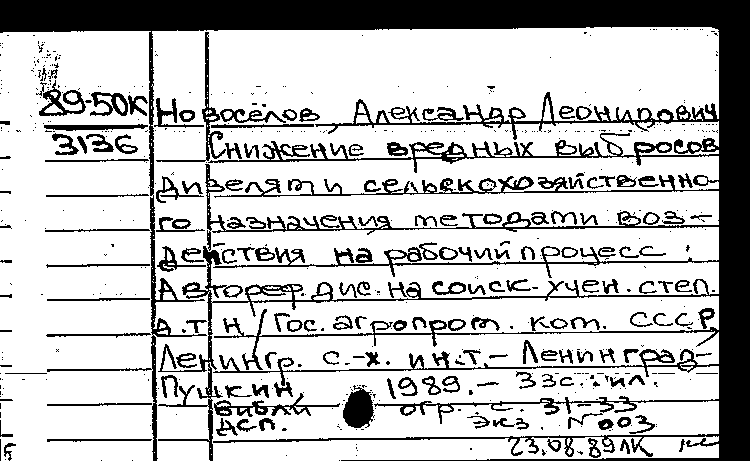 89-50К Новосёлов, Александр Леонидович
3136 Снижение вредных выбросов
дизелями сельскохозяйственно-
го назначения методами воз-
действия на рабочий процесс :
Автореф. дис. на соиск. учен. степ.
д.т.н / Гос. агропром. ком. СССР,
Ленингр. с.-х. ин.т. - Ленинград-
Пушкин, 1989. - 33с. : ил.
Библи огр. с. 31-33
дсп. Экз. N 003
23.08.89ЛК